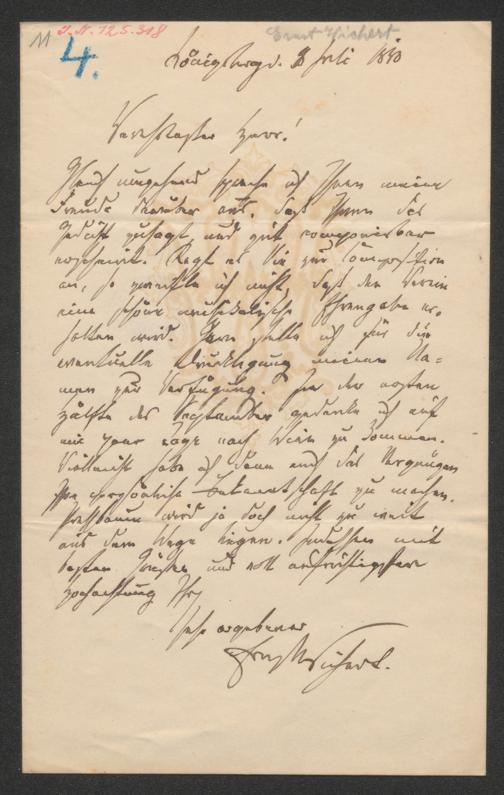 11
I.N. 125.318
Ernst Wichert
4.
Königsberg d. 3 Juli 1890
Verehrtester Herr!
Gleich umgehend spreche ich Ihnen meine
Freude darüber aus, daß Ihnen das
Gedicht zusagt und gut componierbar
erscheint. Regt es Sie zur Composition
an, so zweifle ich nicht, daß der Verein
eine schöne musikalische Ehrengabe er-
halten wird. Gern stelle ich für die
eventuelle Drucklegung meinen Na-
men zur Verfügung. In der ersten
Hälfte des September gedenke ich auf
ein paar Tage nach Wien zu kommen.
Vielleicht habe ich dann auch das Vergnügen
Ihre persönliche Bekanntschaft zu machen.
Pressbaum wird ja doch nicht zu weit
aus dem Wege liegen. Indessen mit
besten Grüßen und voll aufrichtigster
Hochachtung Ihr
sehr ergebener
Ernst Wichert.